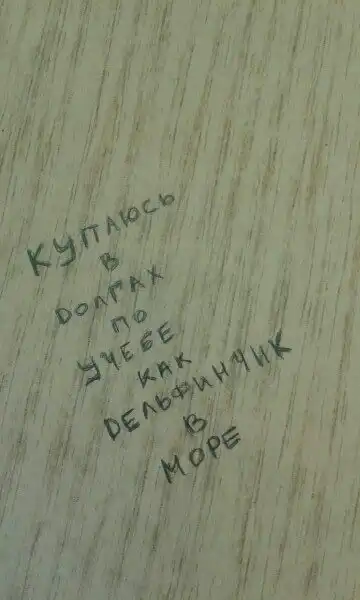 КУПАЮСЬ
В
ДОЛГАХ
ПО
УЧЕБЕ
КАК
ДЕЛЬФИНЧИК
В
МОРЕ